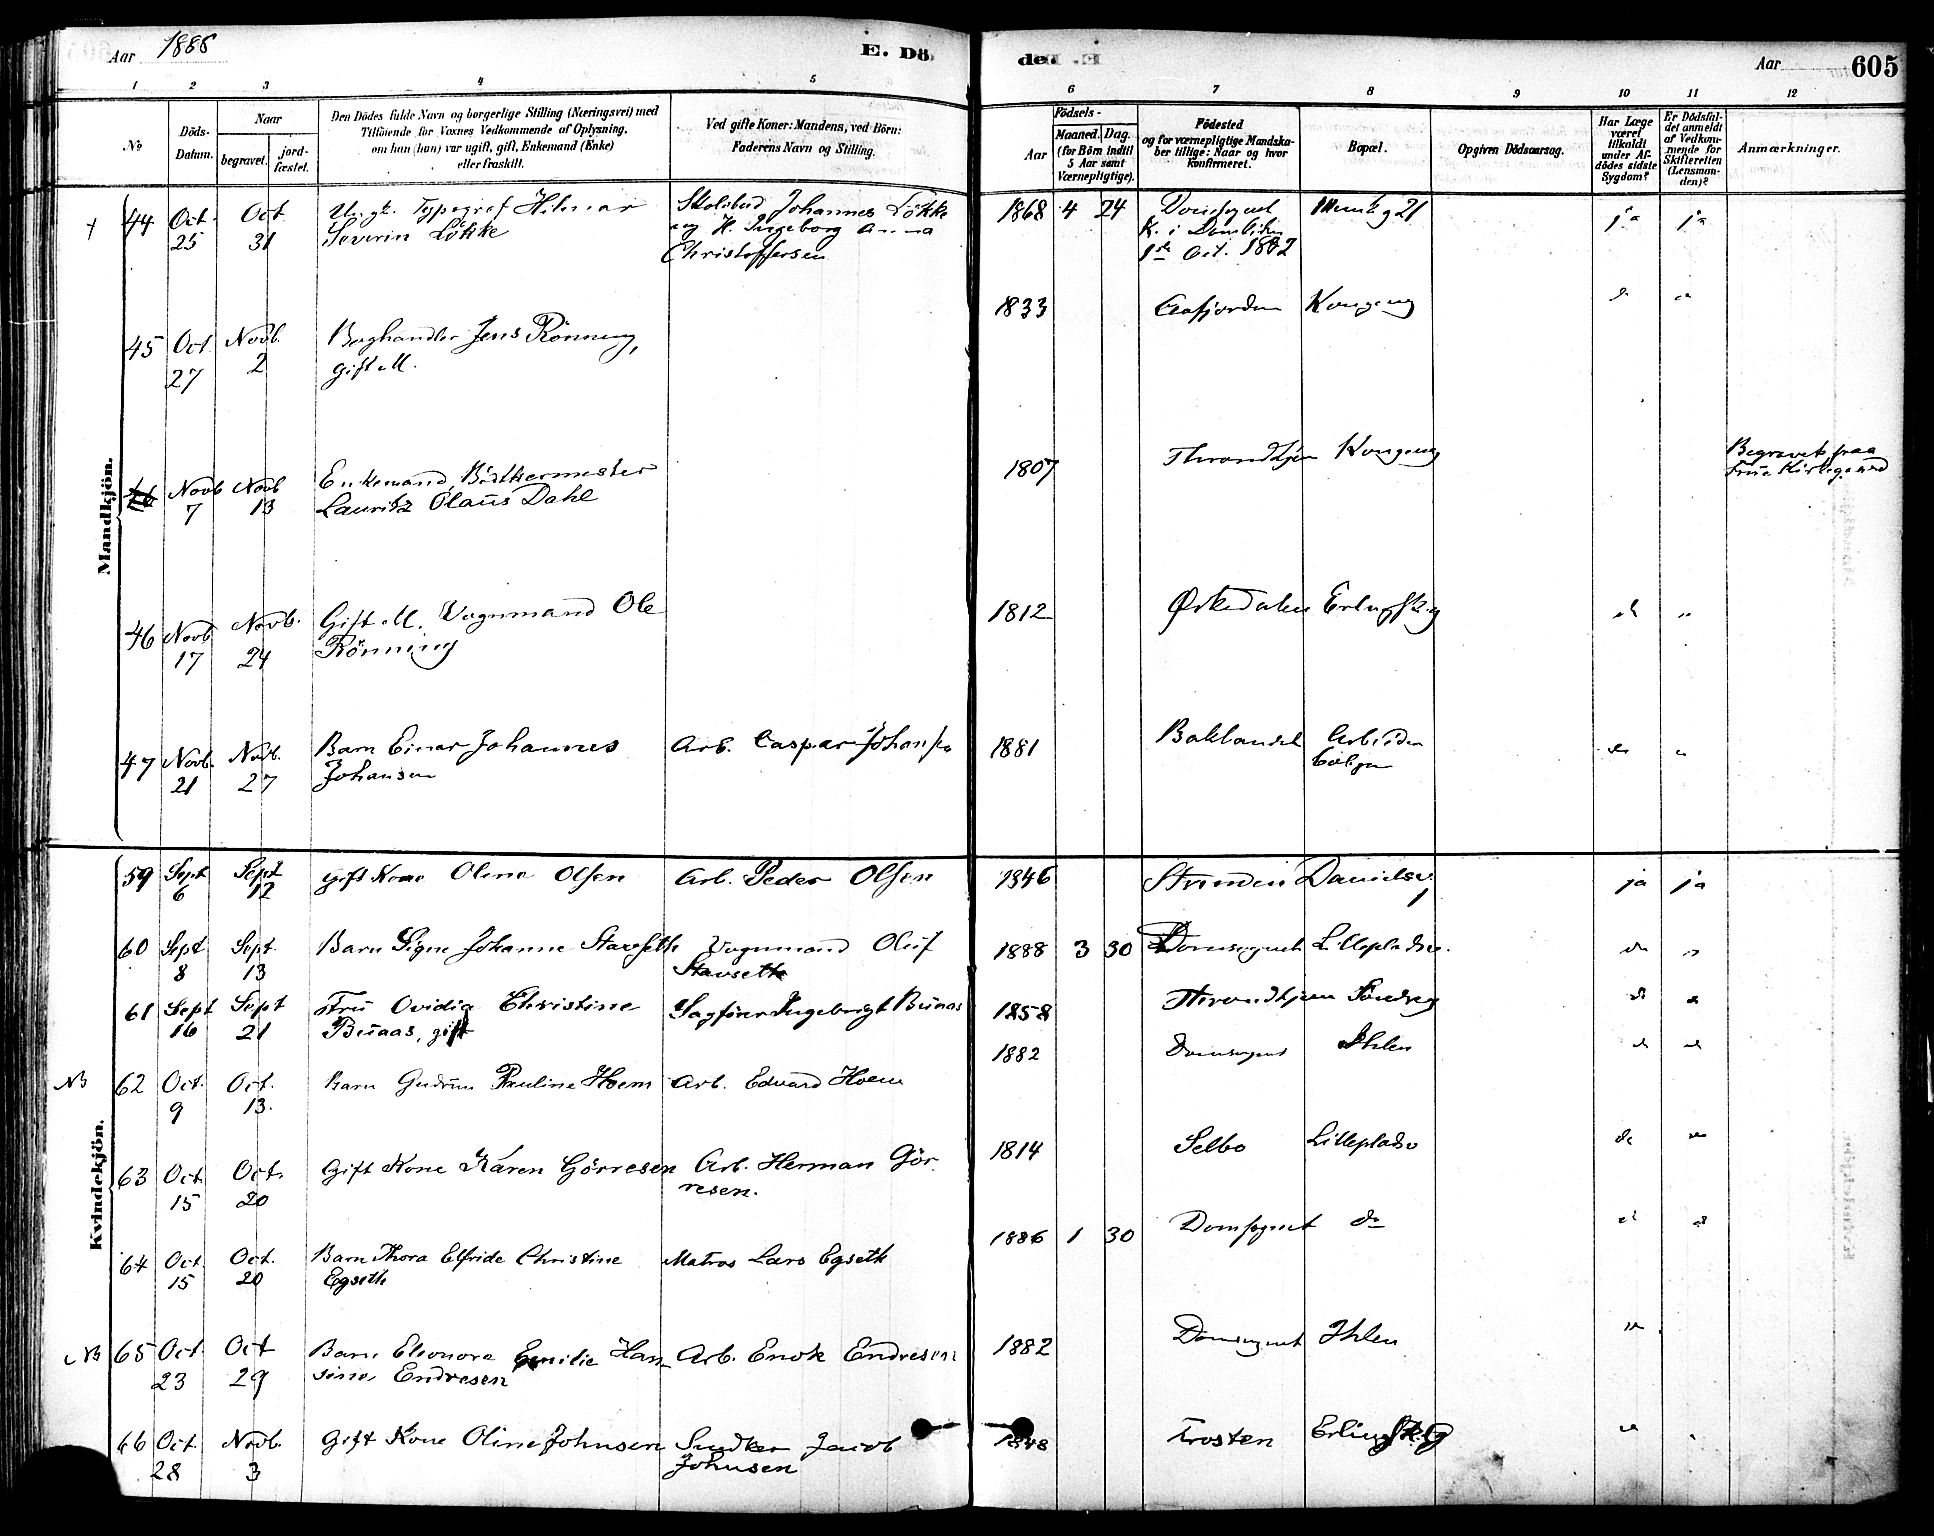 Aar 1888
E. Dö
de
Aar
605
1 2 3 4 5 6 7 8 9 10 11 12
No
Döds-
Datum.
Naar
begravet.
jord-
fæstet.
Den Dödes fulde Navn og borgerlige Stilling (Næringsvei) med
Tilföiende for Voxnes Vedkommende af Oplysning,
om han (hun) var ugift, gift, Enkemand (Enke)
eller fraskilt.
Ved gifte Koner: Mandens, ved Börn:
Faderens Navn og Stilling.
Födsels-
Aar
Maaned. Dag.
(for Börn indtil
5 Aar samt
Værnepligtige).
Födested
og for værnepligtige Mandska-
ber tillige: Naar og hvor
konfirmeret.
Bopæl.
Opgiven Dödsaarsag.
Har Læge
været
tilkaldt
under Af-
dödes sidste
Sygdom?
Er Dödsfal-
det anmeldt
af Vedkom-
mende for
Skifteretten
(Lensman-
den)?
Anmærkninger.
Mandkjön.
44 Oct. 25 Oct 31 Typograf Hilmar
Severin Lökke
Johannes Lökke
og H. Ingeborg Anna
Christoffersen
1868 4 24 Domsognet
K. i Domkirken
1ste Oct. 1882
Munkg 21 ja ja
45 Oct. 27 Novb. 2 Jens Rönning,
gift M.
1833 Aafjorden Kongeng do
46 Novb 7 Novb 13 Enkemand, Bödkermester
Lauritz Olaus Dahl
1807 Throndhjem Kongeng
Begravet paa
Frue Kirkegaard
46 Novb 17 Novb. 24 Gift M. Vognmand Ole
Rönning
1812 Örkedalen Erlingskg do "
47 Novb. 21 Novb. 27 Barn Einar Johannes
Johansen
Arb. Caspar Johansen
1881 Baklandet Arbeider
boliger do "
Kvindekjön.
59 Sept 6 Sept 12 gift Kone Olene Olsen Arb. Peder Olsen 1846 Strinden Danielsv. ja ja
60 Sept 8 Sept. 13 Barn Signe Johanne Stavseth Vognmand Oluf
Stavseth
1888 3 30 Domsognet Lillepladsn. do "
61 Sept 16 Sept 21 Fru Ovidia Christine
Buaas, gift
Sagförer Ingebrigt Buaas
1858 Throndhjem Söndreg do
NB 62 Oct. 9 Oct. 13. Barn Gudrun Pauline Hoem Arb. Edvard Hoem 1882 Domsognet Ihlen do do
63 Oct. 15 Oct. 20 Gift Kone Karen Görresen Arb. Herman Gör
resen.
1814 Selbo Lilleplads do do
64 Oct. 15 Oct. 20 Barn Thora Elfride Christine
Egseth
Matros Lars Egseth
1886 1 30 Domsognet do do do
NB 65 Oct. 23 Oct 29 Barn Eleonora Emilie Han
sine Endresen
Arb. Enok Endresen
1882 Domsognet Ihlen do
66 Oct. 28 Novb. 3 Gift Kone Oline Johnsen Snedker Jacob
Johnsen
1848 Frosten Erlingskg do